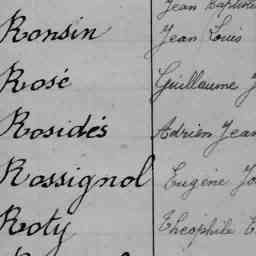 Jean Baptiste
Ronsin Jean Louis
Rosé Guillaume
Rosidés Adrien Jean
Rossignol Eugène
Roty Théophile